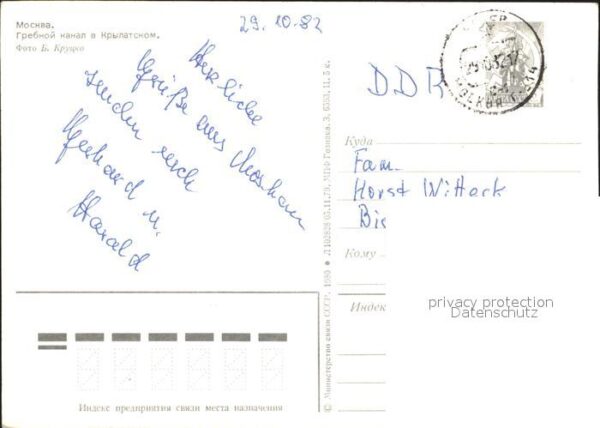 Москва.
Гребной канал в Крылатском.
Фото Б. Круцко
29.10.82
Herzliche
Grüße aus Moskau
senden euch
Gerhard u.
Harald
DDR
Куда
Fam.
Horst Witteck
Bie
Кому
Индек
privacy protection
Datenschutz
Индекс предприятия связи места назначения
© Министерство связи СССР. 1980 ● Л 102828 05.11.79. МПФ Гознака. З. 6383. ц. 5 к.
МОСКВА